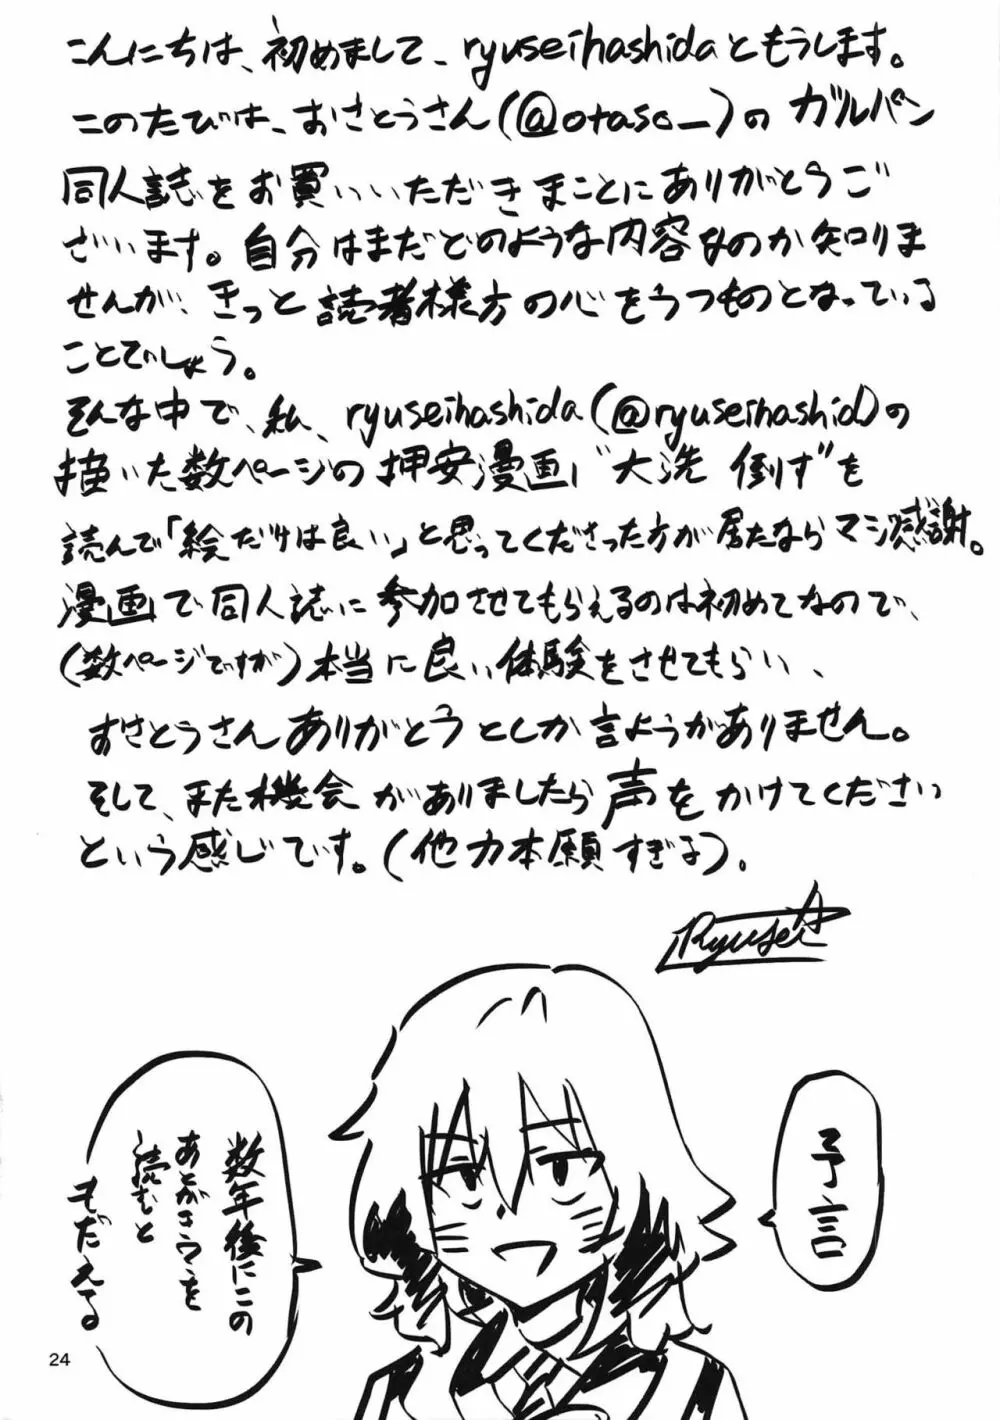 こんにちは、初めまして、ryuseihashidaともうします。
このたびは、おさとうさん(@otaso_)の ガルパン
同人誌をお買いいただきまことにありがとうご
ざいます。自分はまだどのような内容なのか知りま
せんが、きっと読者様方の心をうつものとなっている
ことでしょう。
そんな中で、私、ryuseihashida(@ryuseihashid)の
描いた数ページの押安漫画"大洗 倒す"を
読んで「絵だけは良い」と思ってくださった方が居たならマジ感謝。
漫画で同人誌に参加させてもらえるのは初めてなので、
(数ページですが)本当に良い体験をさせてもらい、
おさとうさんありがとうとしか言ようがありません。
そして、また機会がありましたら声をかけてください
という感じです。(他力本願すぎる)。
Ryusei
予言
数年後にこの
あとがきを
読むと
もだえる
24